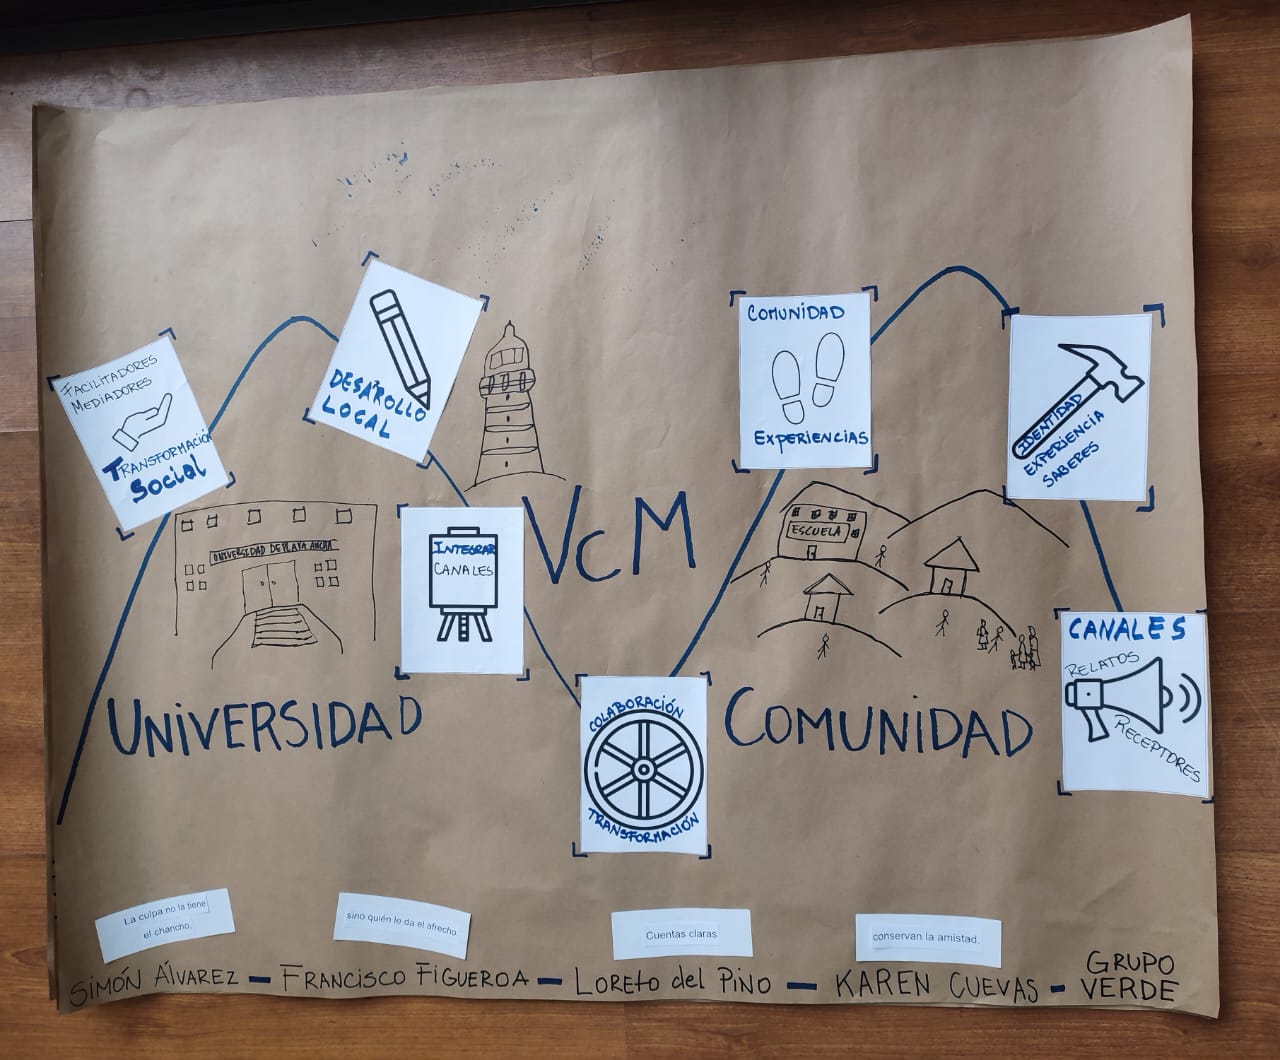 FACILITADORES
MEDIADORES
TRANSFORMACIÓN
SOCIAL
DESAROLLO
LOCAL
COMUNIDAD
EXPERIENCIAS
IDENTIDAD
EXPERIENCIA
SABERES
UNIVERSIDAD DE PLAYA ANCHA
INTEGRAR
CANALES
VcM
ESCUELA
CANALES
RELATOS
RECEPTORES
UNIVERSIDAD
COLABORACIÓN
TRANSFORMACIÓN
COMUNIDAD
La culpa no la tiene
el chancho.
sino quién le da el afrecho
Cuentas claras
conservan la amistad.
SIMÓN ÁLVAREZ – FRANCISCO FIGUEROA – LORETO del PINO – KAREN CUEVAS – GRUPO
VERDE